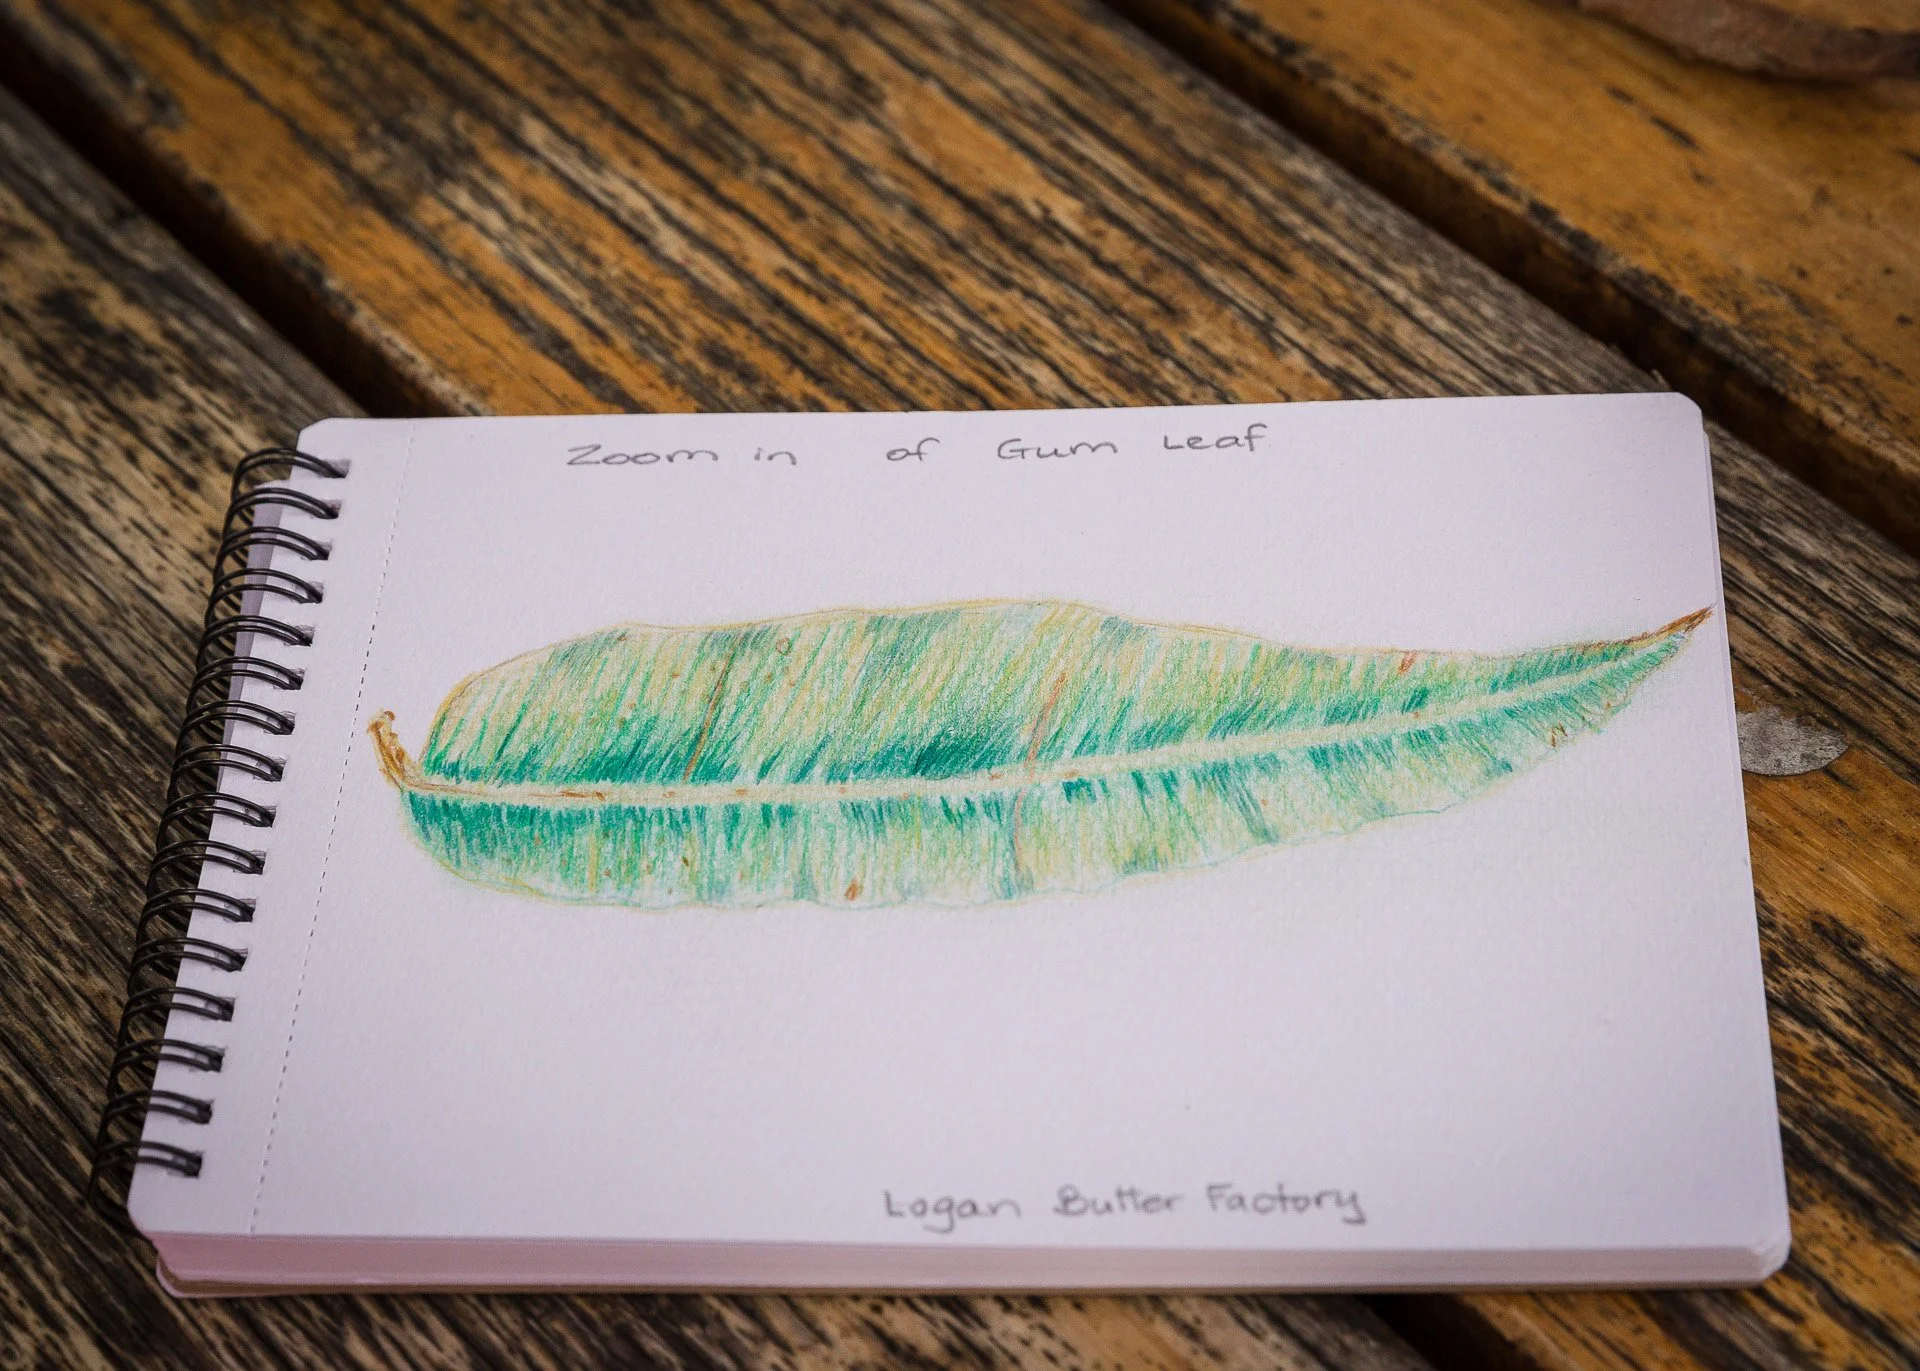 Zoom in of Gum Leaf
Logan Butter Factory